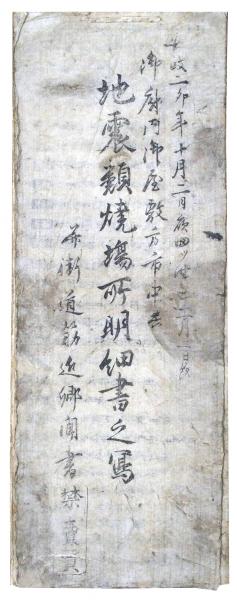 安政二卯年十月二日夜四ツ時
御府内御屋敷方市中共
地震類燒場所明細書之寫
并街道筋近郷聞書 禁賣買